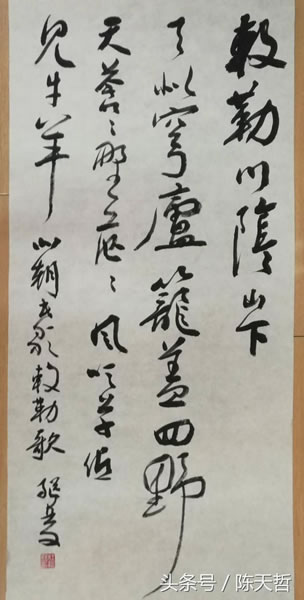 敕勒川陰山下
天似穹廬籠盖四野
天蒼〻野茫〻風吹草低
見牛羊 北朝 敕勒歌
头条号 / 陈天哲